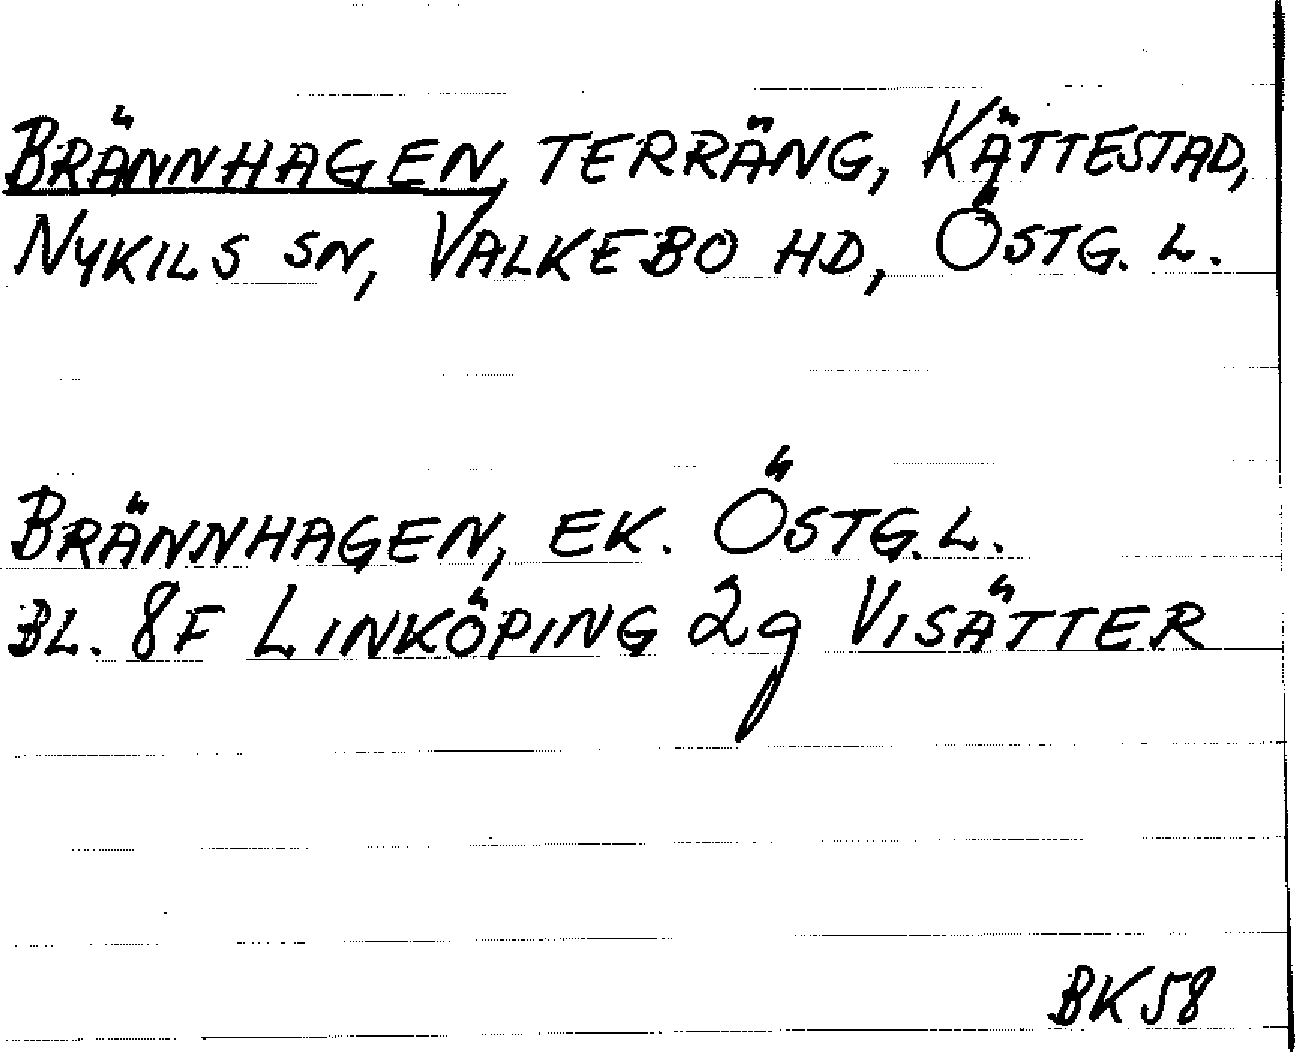 BRÄNNHAGEN, TERRÄNG, KÄTTESTAD,
NYKILS SN, VALKEBO HD, ÖSTG. L.
BRÄNNHAGEN, EK. ÖSTG. L.
BL. 8F LINKÖPING 2g VISÄTTER
BK58